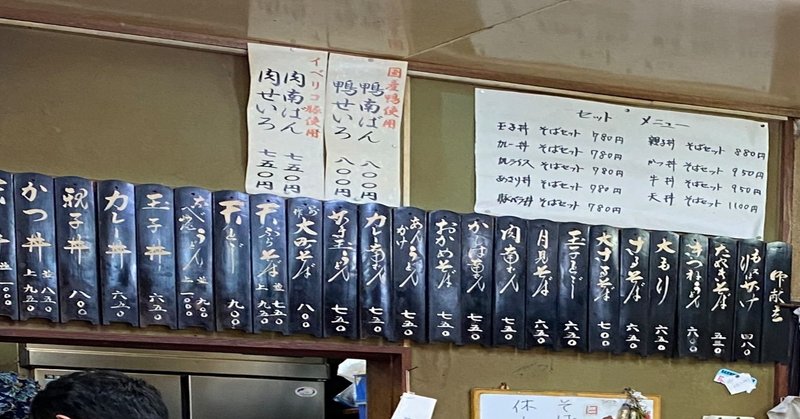 国産鴨使用
鴨南ばん 八〇〇円
鴨せいろ 八〇〇円
イベリコ豚使用
肉南ばん 七五〇円
肉せいろ 七五〇円
セット メニュー
玉子丼 そばセット 780円
カレー丼 そばセット 780円
カレーライス そばセット 780円
あさり丼 そばセット 980円
豚バラ丼 そばセット 780円
親子丼 そばセット 880円
カツ丼 そばセット 950円
牛丼 そばセット 950円
天丼 そばセット 1100円
御献立
もりかけ 四八〇
たぬきそば 五三〇
きつね
大もり 六五〇
ざるそば 六五〇
大ざるそば 七〇〇
玉子とじ 六五〇
月見そば 六五〇
肉南ばん 七五〇
かしわ南ばん 七五〇
おかめそば 七五〇
あんかけうどん 七五〇
カレー南ばん 七五〇
七五〇
大町そば 八〇〇
天ぷらそば 並 七五〇 上 九五〇
天とじ 九〇〇
なべ焼うどん 並 九〇〇 上
玉子丼 六五〇
カレー丼 六五〇
親子丼 八〇〇
かつ丼 並 八五〇 上 九五〇
そば
休